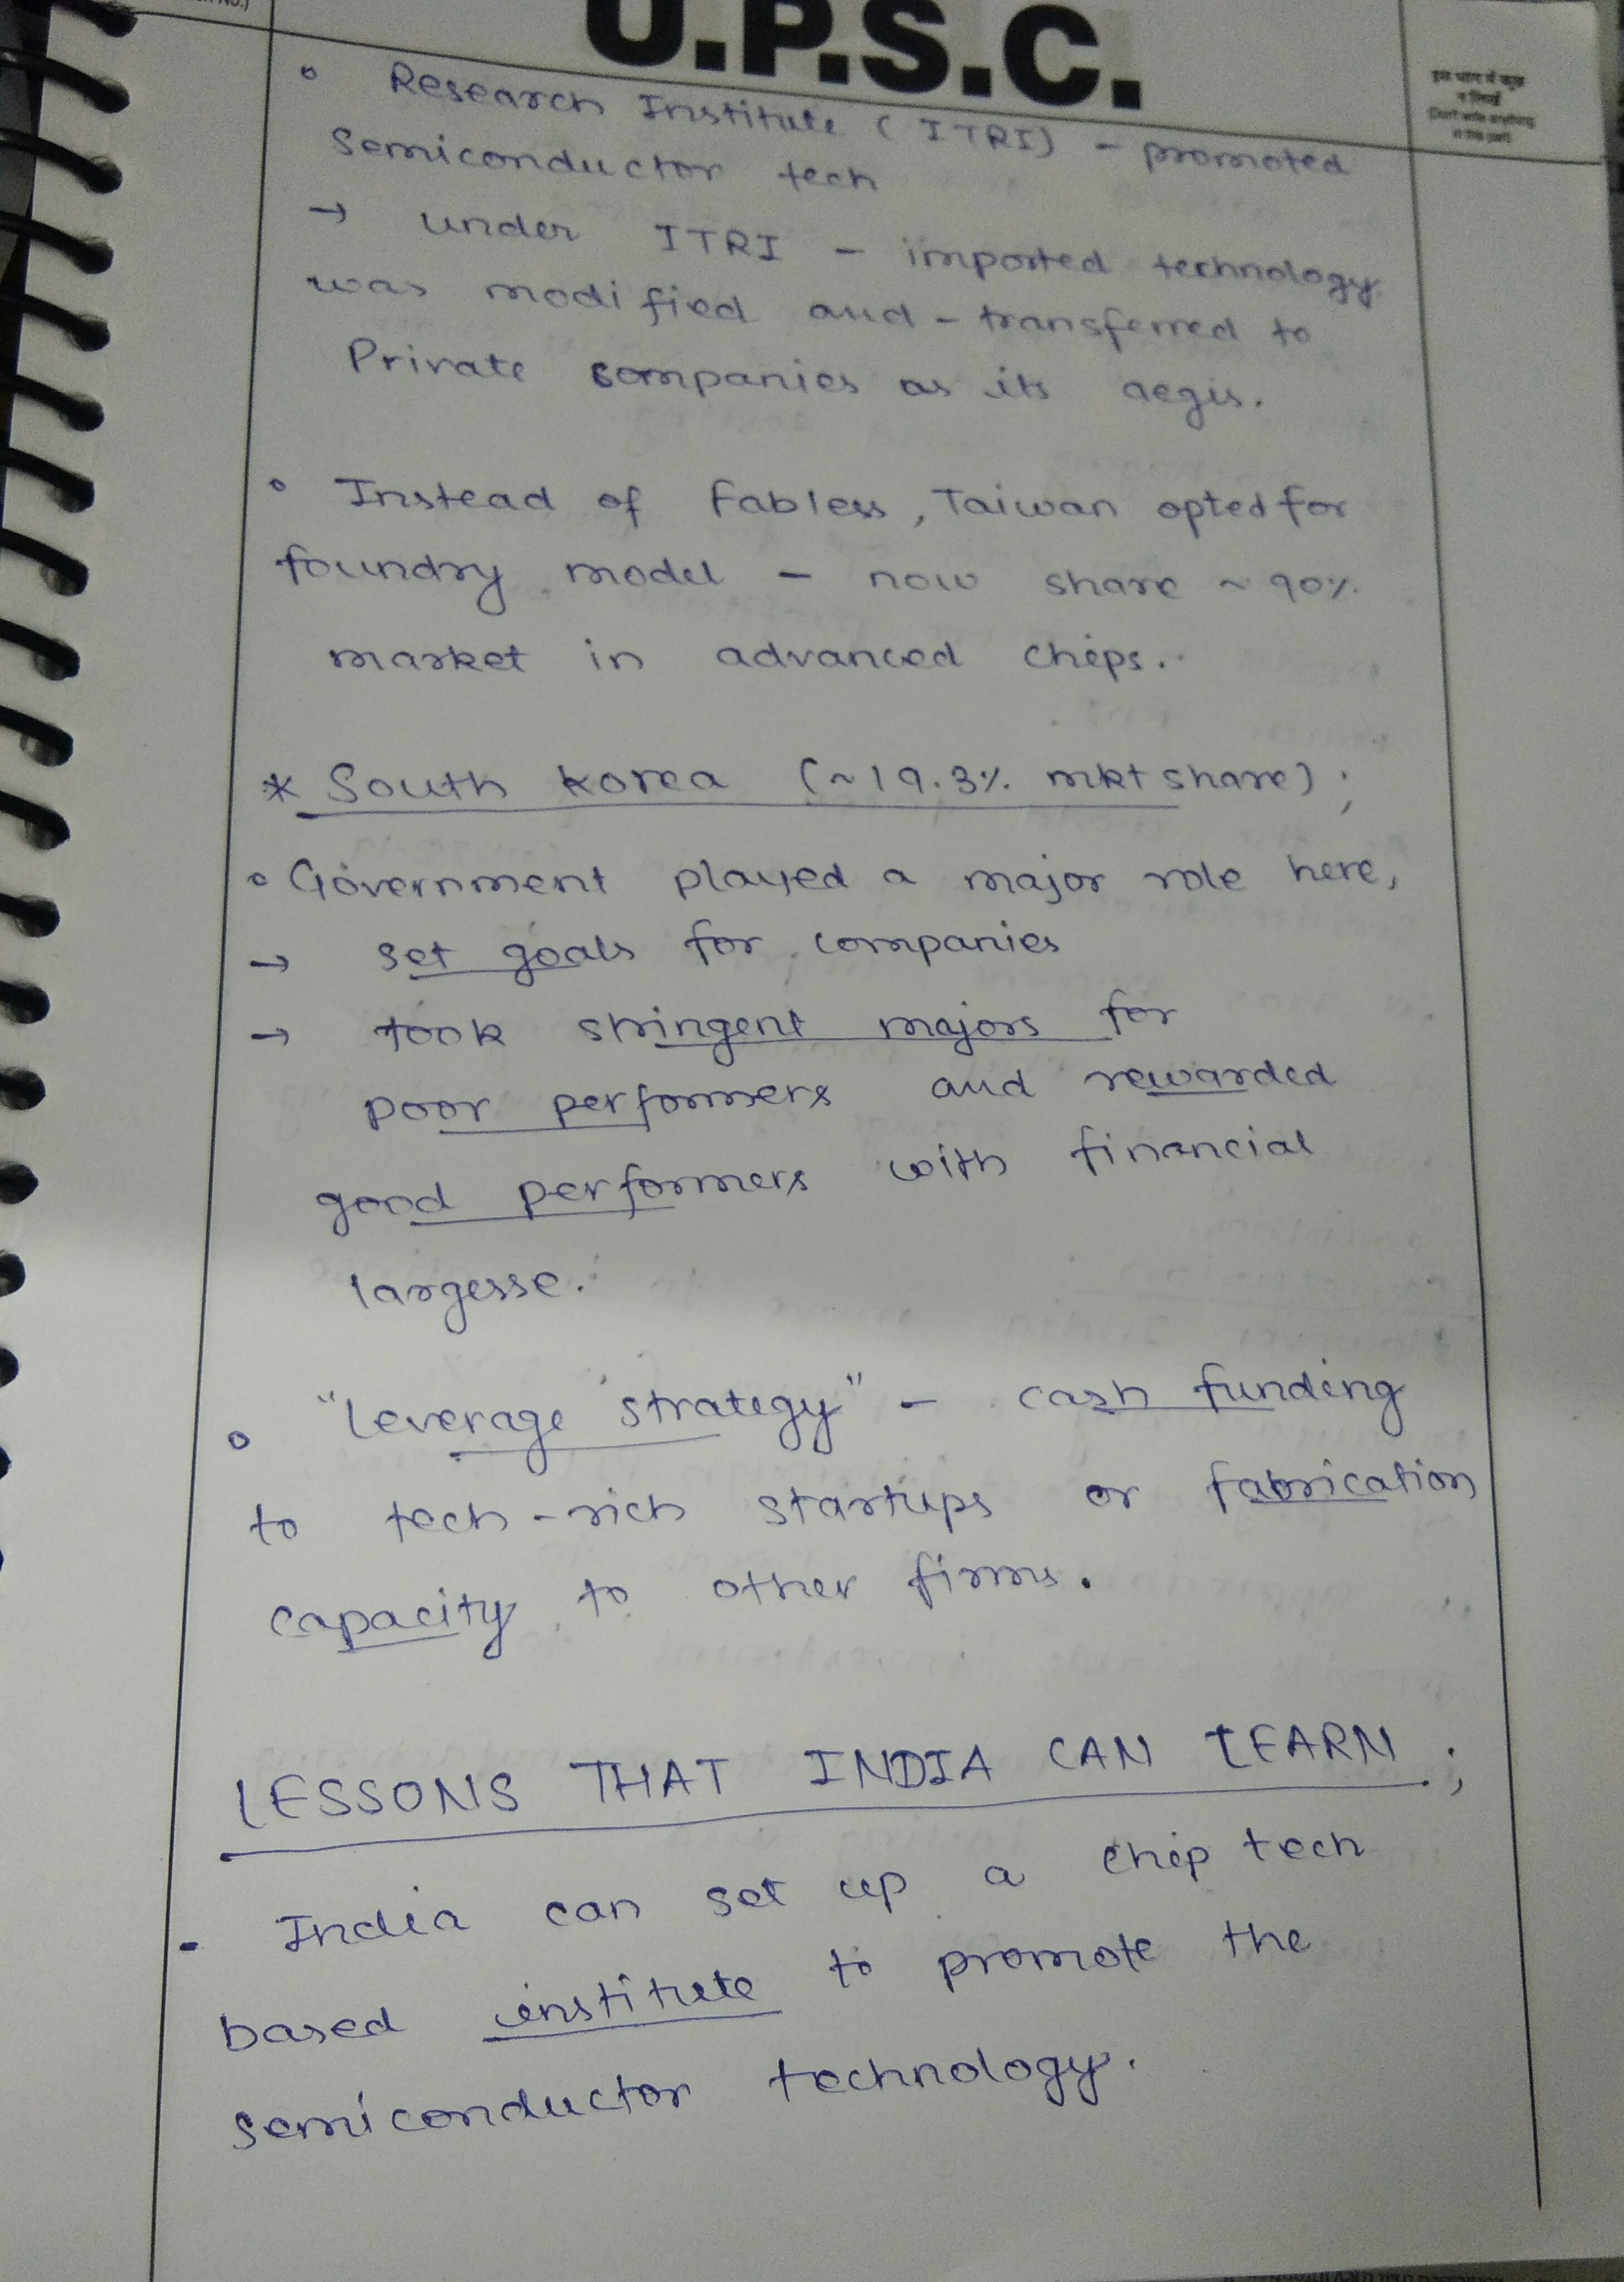 U.P.S.C.
इस भाग में कुछ
न लिखें
(Don't write anything
in this part)
° Research Institute (ITRI) - promoted
semiconductor tech
→ under ITRI - imported technology
was modified and - transferred to
Private companies as its aegis.
° Instead of Fabless, Taiwan opted for
foundry model - now share ~ 90%
market in advanced chips.
* South Korea (~19.3% mkt share) ;
° Government played a major role here,
→ set goals for companies
→ took stringent majors for
poor performers and rewarded
good performers with financial
largesse.
° "leverage strategy" - cash funding
to tech-rich startups or fabrication
capacity to other firms.
LESSONS THAT INDIA CAN LEARN ;
- India can set up a chip tech
based institute to promote the
semiconductor technology.